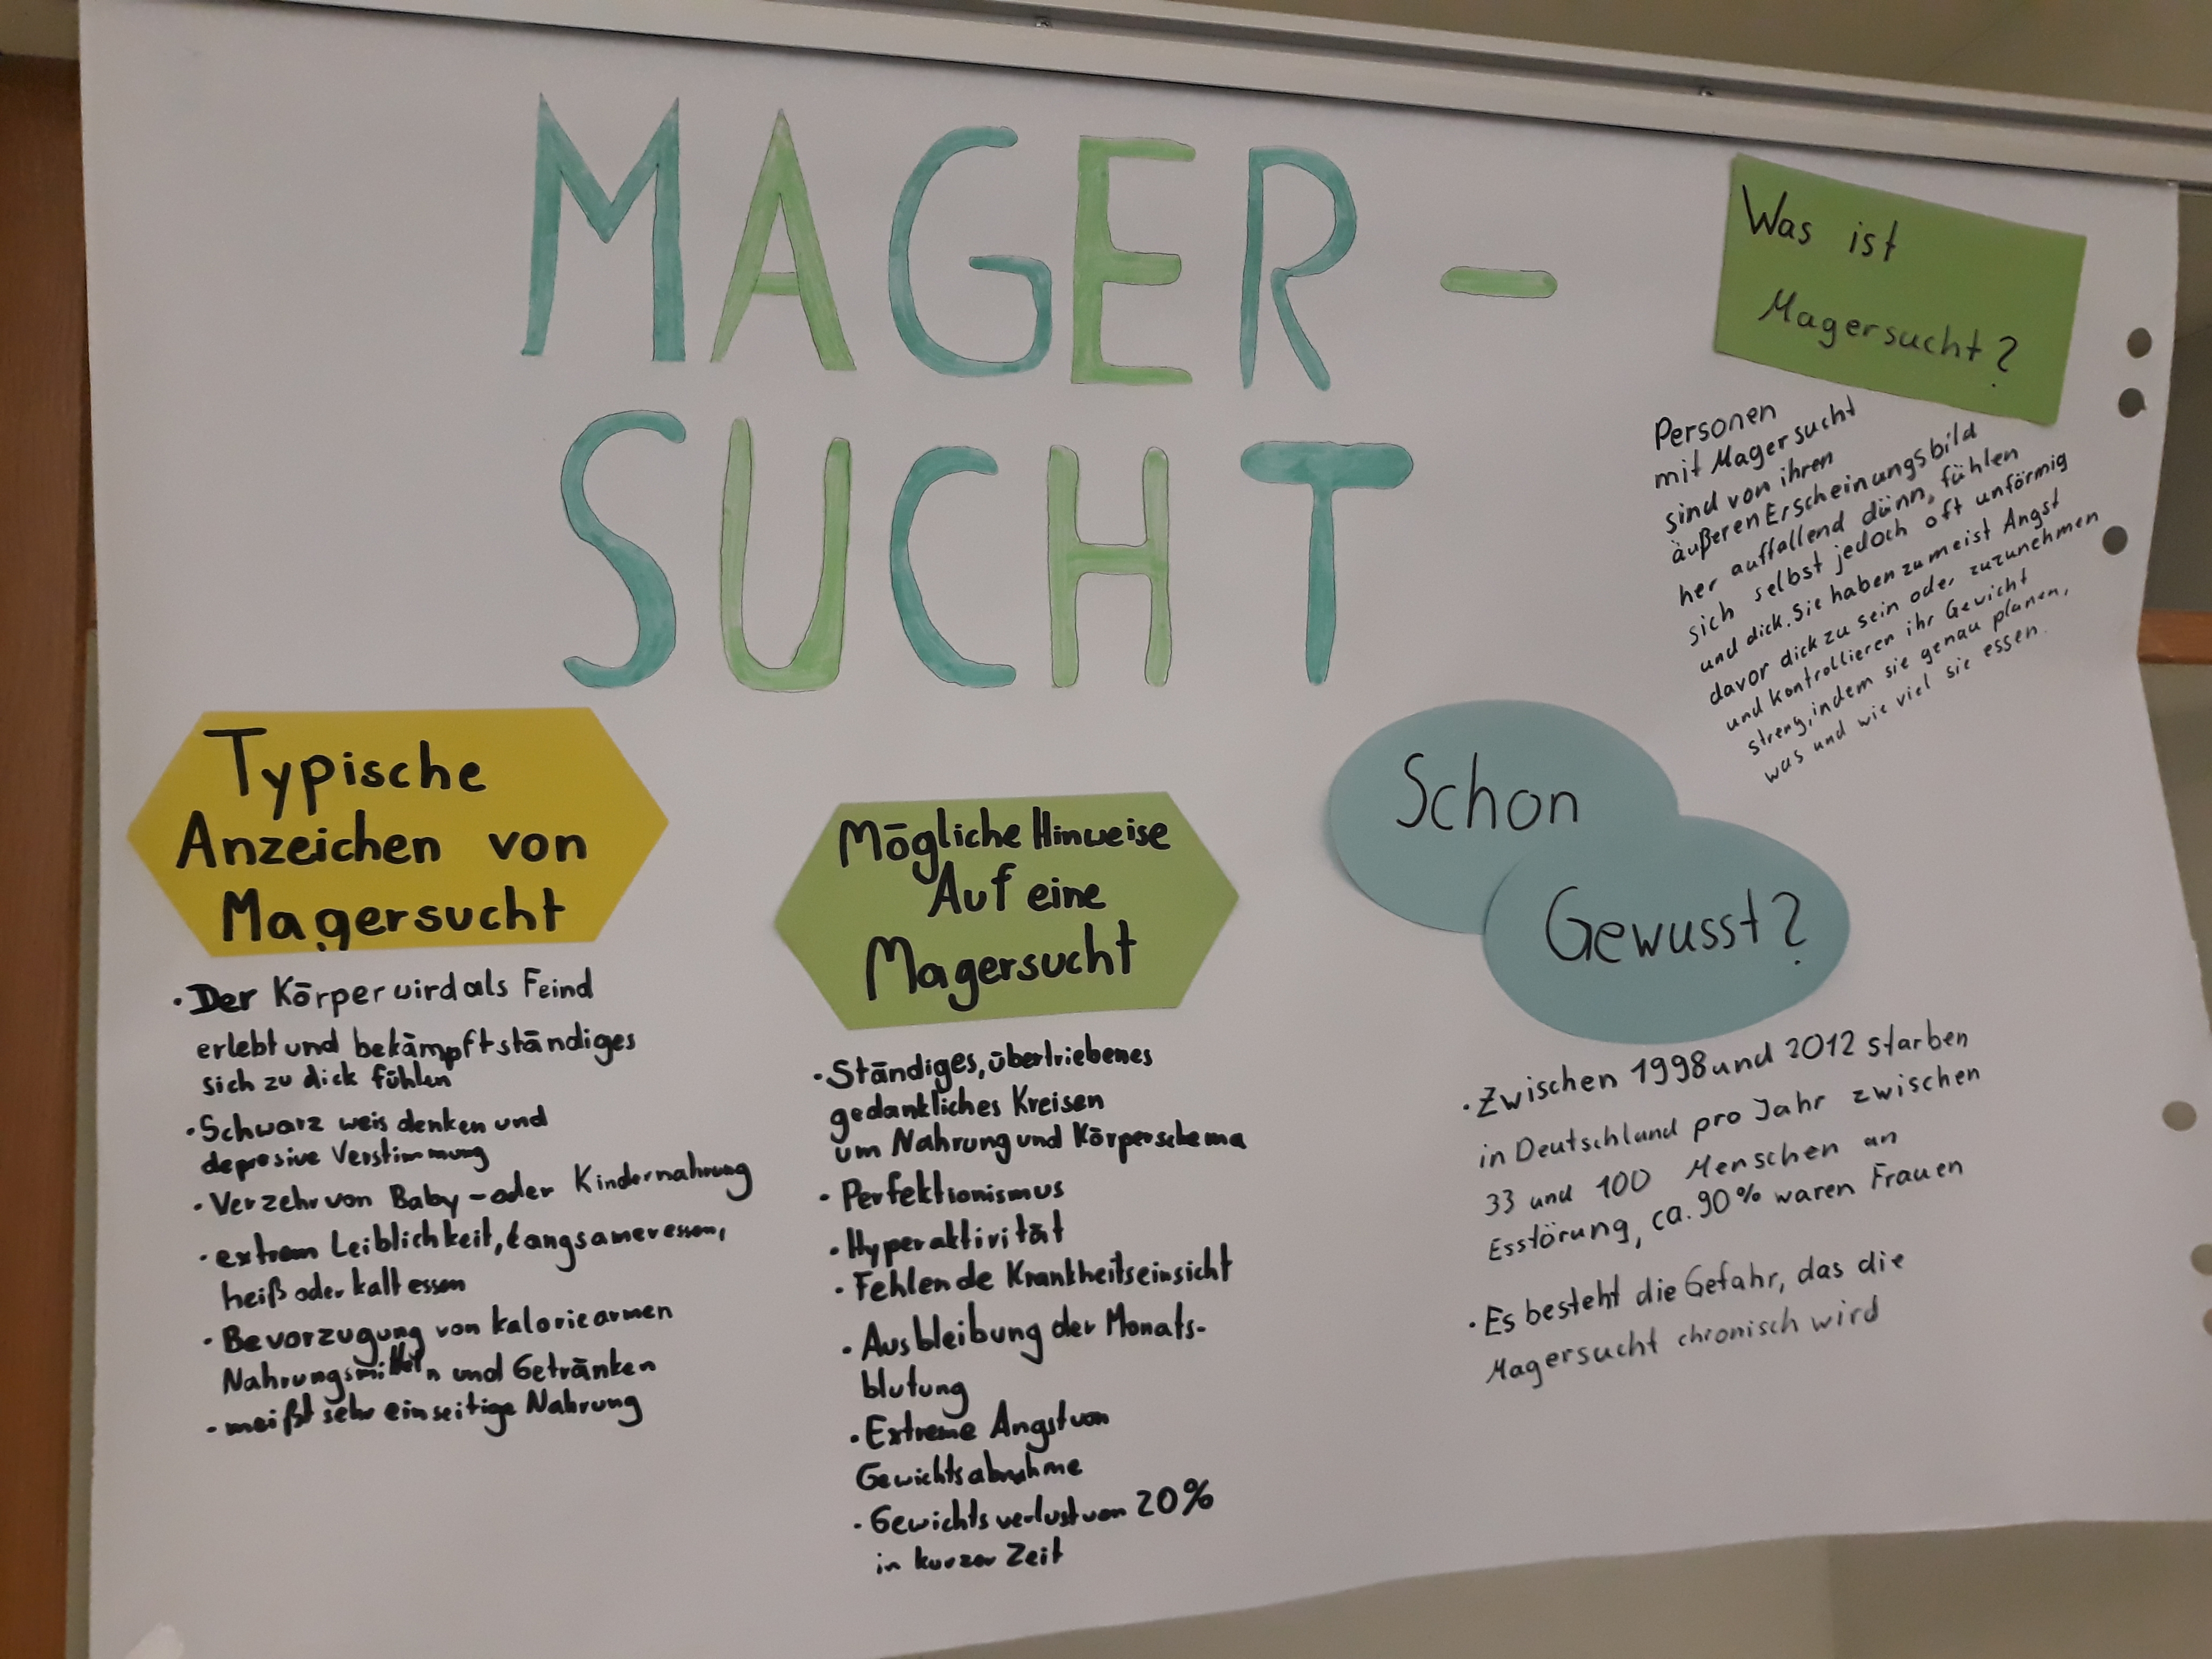 MAGER-
SUCHT
Was ist
Magersucht?
Personen
mit Magersucht
sind von ihren
äußeren Erscheinungsbild
her auffallend dünn, fühlen
sich selbst jedoch oft unförmig
und dick. Sie haben zumeist Angst
davor dick zu sein oder zuzunehmen
und kontrollieren ihr Gewicht
streng, indem sie genau planen,
was und wie viel sie essen.
Typische
Anzeichen von
Magersucht
• Der Körper wird als Feind
erlebt und bekämpft ständiges
sich zu dick fühlen
• Schwarz weis denken und
depresive Verstimmung
• Verzehr von Baby-oder Kindernahrung
• extrem Leiblichkeit, Langsamer essen,
heiß oder kalt essen
• Bevorzugung von kaloriearmen
Nahrungsmitteln und Getränken
• meißt sehr einseitige Nahrung
Mögliche Hinweise
Auf eine
Magersucht
• Ständiges, übertriebenes
gedankliches Kreisen
um Nahrung und Körperschema
• Perfektionismus
• Hyperaktivität
• Fehlende Krankheitseinsicht
• Ausbleibung der Monats-
blutung
• Extreme Angst von
Gewichtsabnahme
• Gewichtsverlust von 20%
in kurzer Zeit
Schon
Gewusst?
• Zwischen 1998 und 2012 starben
in Deutschland pro Jahr zwischen
33 und 100 Menschen an
Esstörung, ca. 90% waren Frauen
• Es besteht die Gefahr, das die
Magersucht chronisch wird